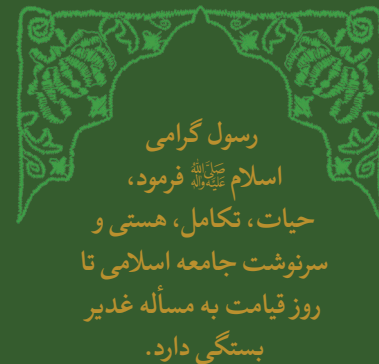 رسول گرامی
اسلام ﷺ فرمود،
حیات، تکامل، هستی و
سرنوشت جامعه اسلامی تا
روز قیامت به مسأله غدیر
بستگی دارد.